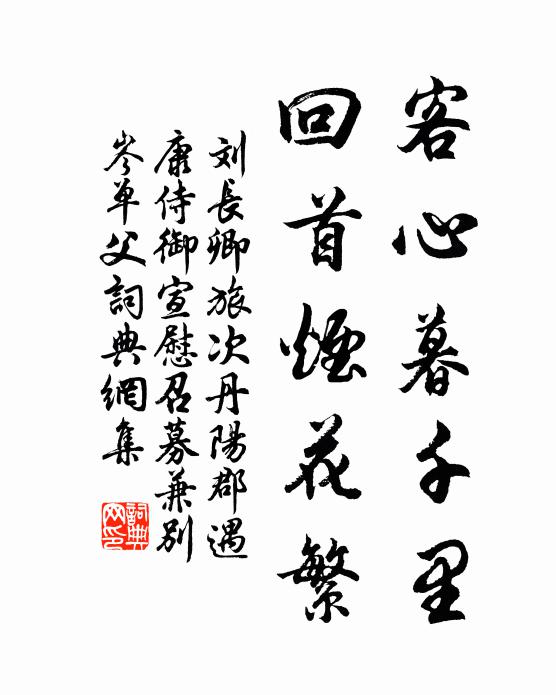 客心暮千里
回首煙花繁
刘長卿旅次丹陽郡遇
康侍御宣慰召募兼別
岑单父詞典網集
詞典
网印